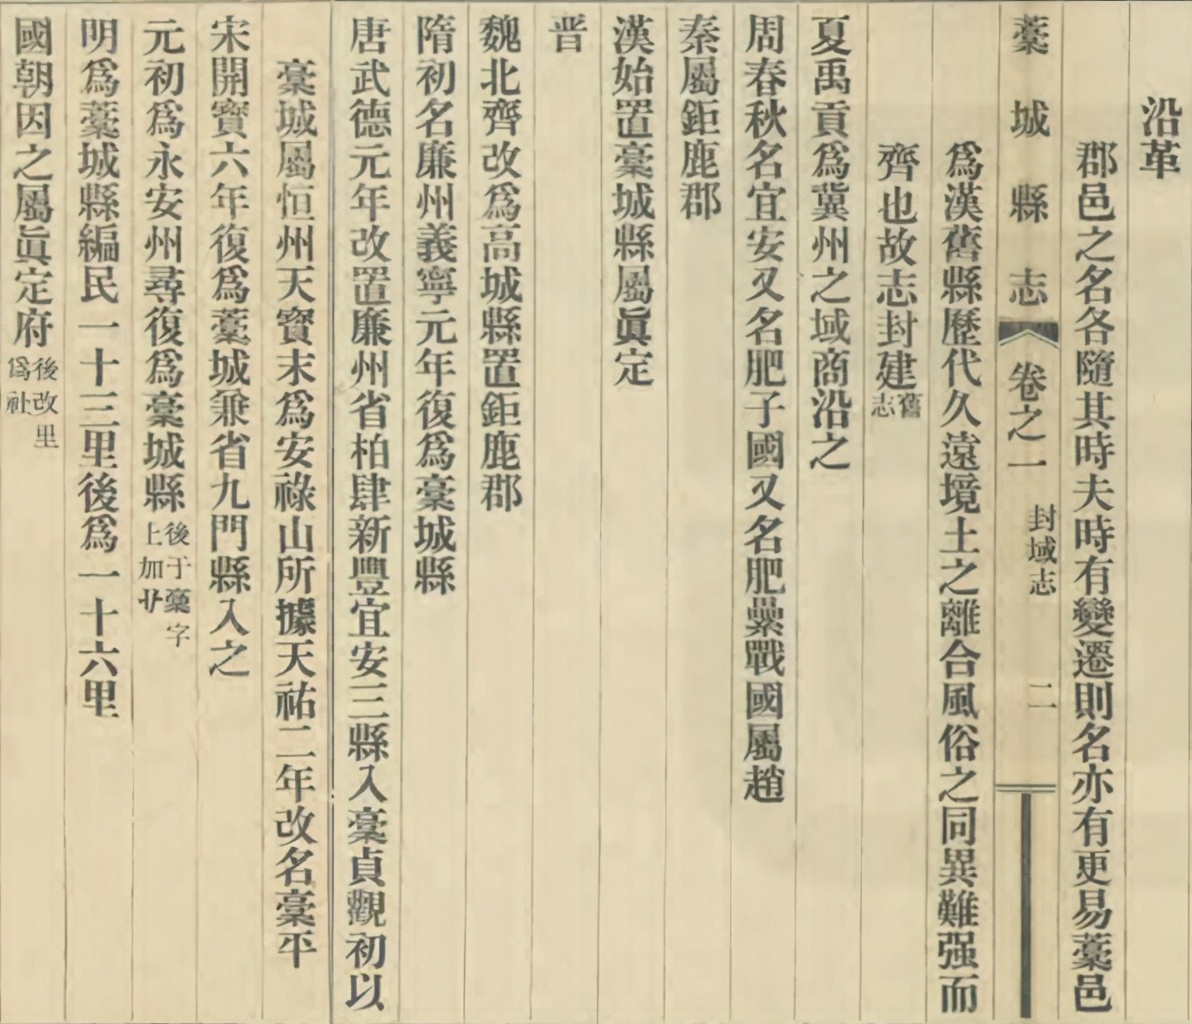 沿革
郡邑之名各隨其時夫時有變遷則名亦有更易藁邑
藁城縣志 卷之一 封域志 二
爲漢舊縣歷代久遠境土之離合風俗之同異難强而
齊也故志封建舊志
夏禹貢爲冀州之域商沿之
周春秋名宜安又名肥子國又名肥纍戰國屬趙
秦屬鉅鹿郡
漢始置稾城縣屬眞定
晋
魏北齊改爲高城縣置鉅鹿郡
隋初名廉州義寧元年復爲稾城縣
唐武德元年改置廉州省柏肆新豐宜安三縣入稾貞觀初以
稾城屬恒州天寳末爲安祿山所據天祐二年改名稾平
宋開寳六年復爲藁城兼省九門縣入之
元初爲永安州尋復爲稾城縣後于稾字上加艹
明爲藁城縣編民一十三里後爲一十六里
國朝因之屬眞定府後改里爲社